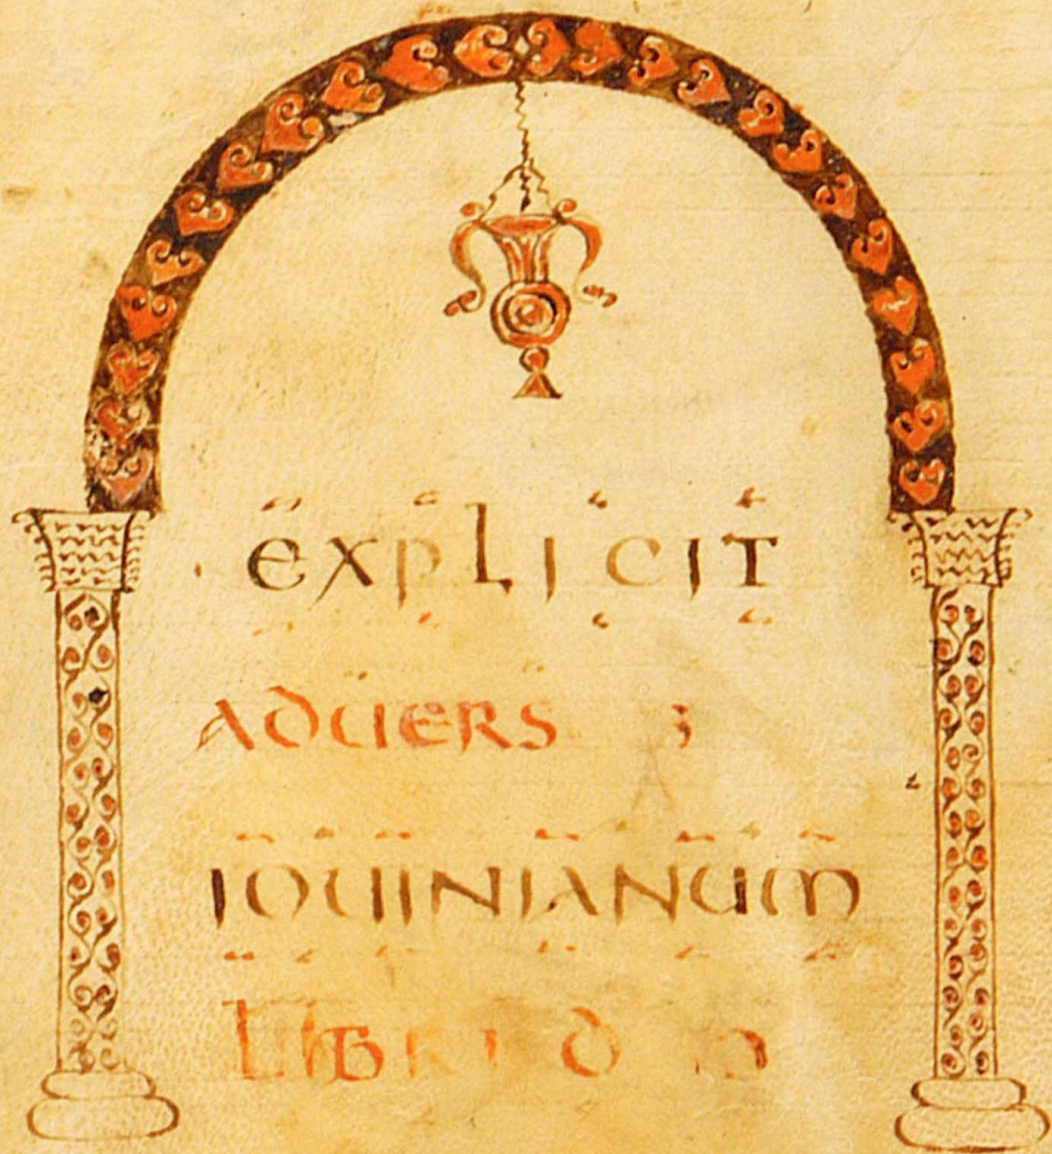 EXPLICIT
ADUERS
IOUINIANUM
LIBRI DUO